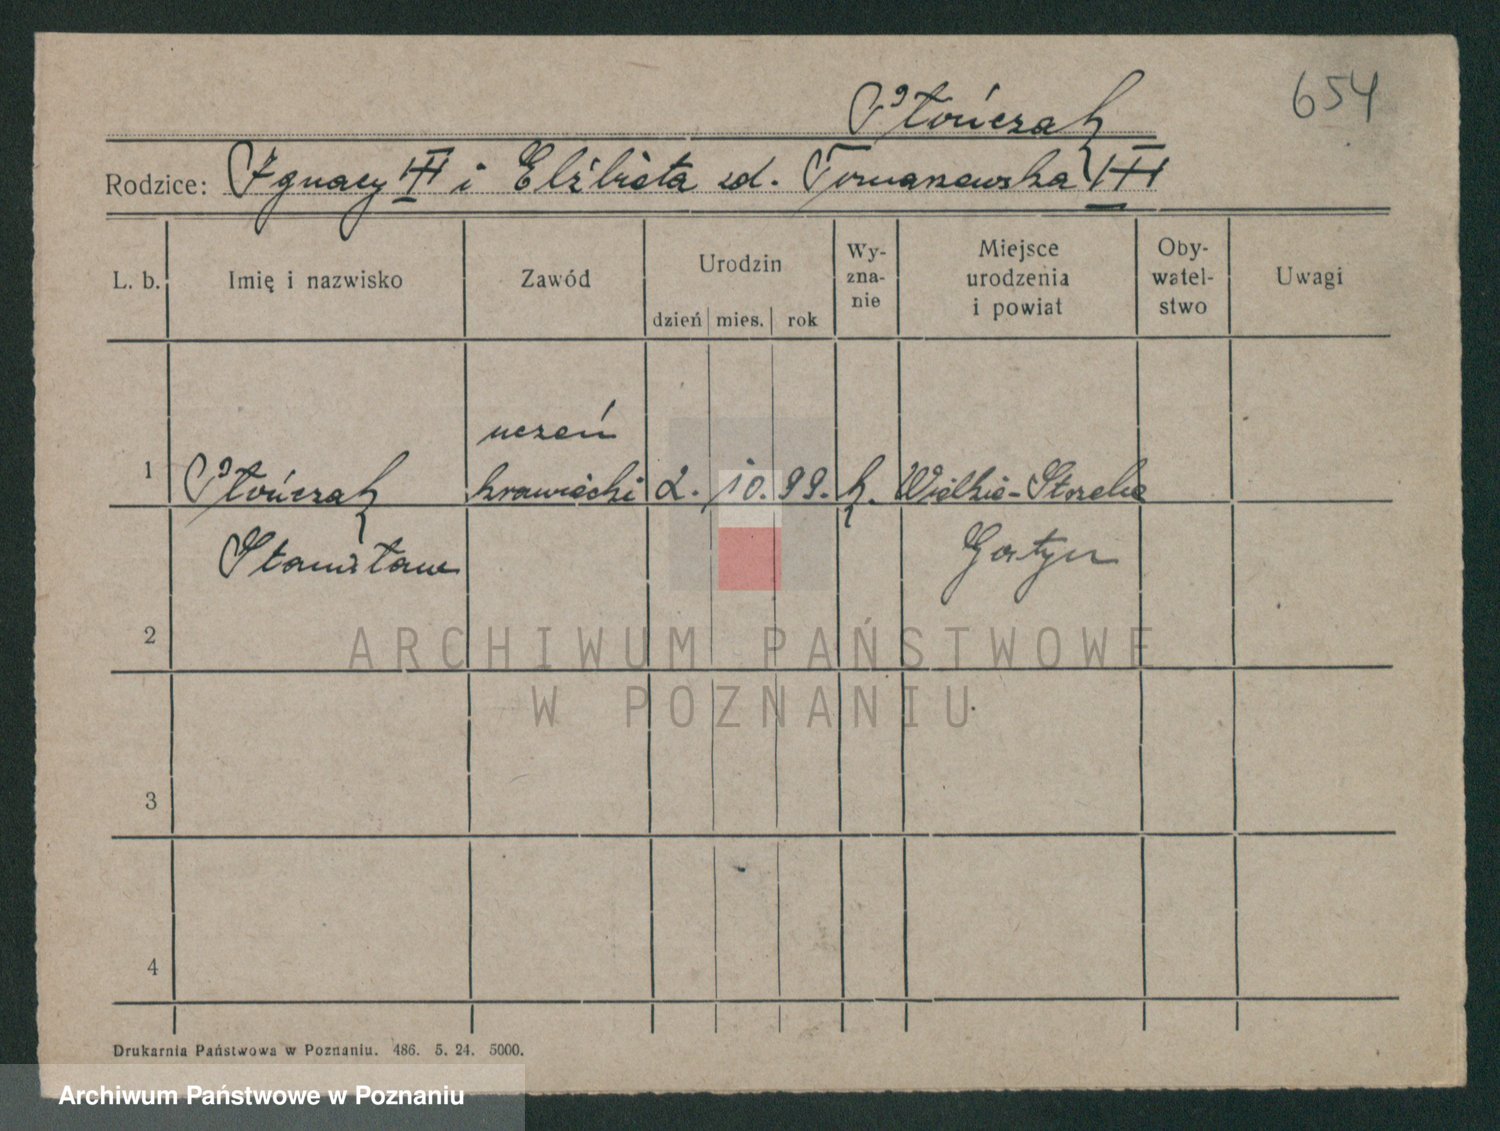 654
Ptończak
Rodzice: Ignacy III i Elżbieta zd. Tomaszewska III
L. b. Imię i nazwisko Zawód Urodzin dzień mies. rok Wy-zna-nie Miejsce urodzenia i powiat Oby-watel-stwo Uwagi
uczeń
1 Ptończak krawiecki 2. 10. 99. k. Wielkie-Strzelce
Stanisław Gostyń
2
ARCHIWUM PAŃSTWOWE
W POZNANIU
3
4
Drukarnia Państwowa w Poznaniu. 486. 5. 24. 5000.
Archiwum Państwowe w Poznaniu